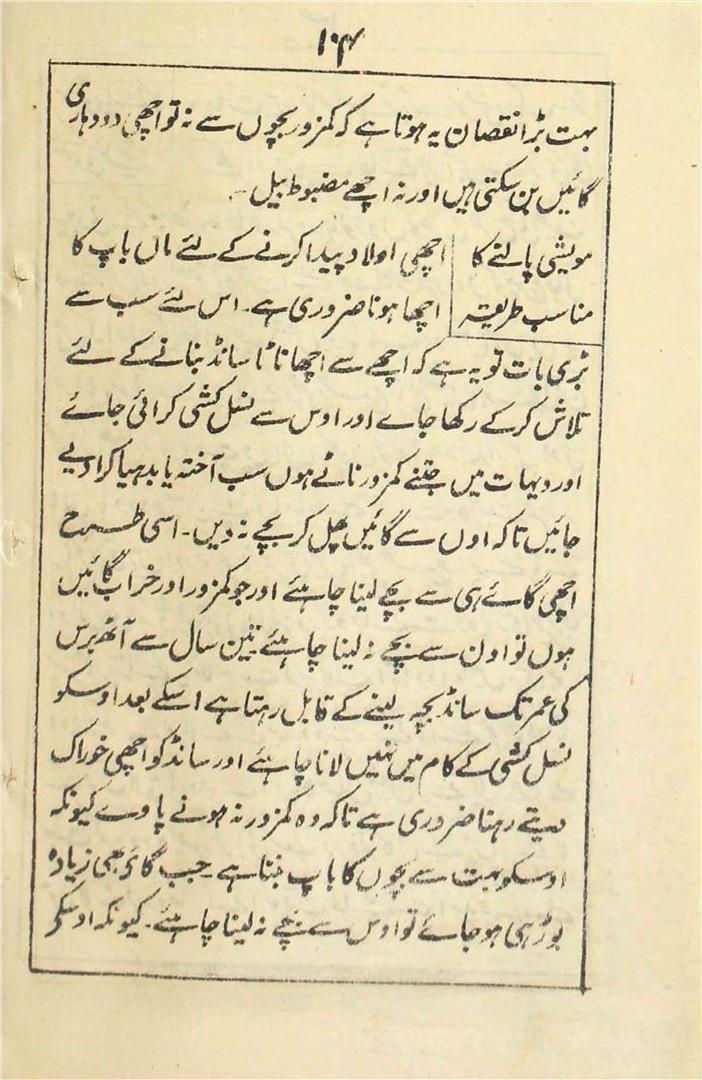 ۱۰۴
بہت بڑا نقصان یہ ہوتا ہے کہ کمزور بچوں سے نہ تو اچھی دودہاری
گائیں بن سکتی ہیں اور نہ اچھے مضبوط بیل ۔
مویشی پالنے کا
مناسب طریقہ
اچھی اولاد پیدا کرنے کے لئے ماں باپ کا
اچھا ہونا ضروری ہے۔ اس لئے سب سے
بڑی بات تو یہ ہے کہ اچھے سے اچھا ناٹا سانڈ بنانے کے لئے
تلاش کر کے رکھا جاے اور اوس سے نسل کشی کرائی جائے
اور دیہات میں جتنے کمزور ناٹے ہوں سب آختہ یا بدہیا کرا دیے
جائیں تاکہ اوں سے گائیں پھل کر بچے نہ دیں۔ اسی طرح
اچھی گائے ہی سے بچے لینا چاہئے اور جو کمزور اور خراب گائیں
ہوں تو اون سے بچے نہ لینا چاہئے تین سال سے آٹھ برس
کی عمر تک سانڈ بچہ لینے کے قابل رہتا ہے اسکے بعد اوسکو
نسل کشی کے کام میں نہیں لانا چاہئے اور سانڈ کو اچھی خوراک
دیتے رہنا ضروری ہے تاکہ وہ کمزور نہ ہونے پاوے کیونکہ
اوسکو بہت سے بچوں کا باپ بننا ہے۔ جب گائے بھی زیادہ
بوڑہی ہو جائے تو اوس سے بچے نہ لینا چاہئے۔ کیونکہ اوسکی